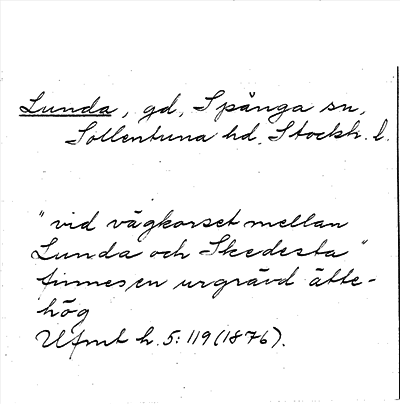 Lunda, gd, Spånga sn,
Sollentuna hd, Stockh. l.
"vid vägkorset mellan
Lunda och Skedesta"
finnes en urgrävd ätte-
hög
Ufmt h. 5:119 (1876).